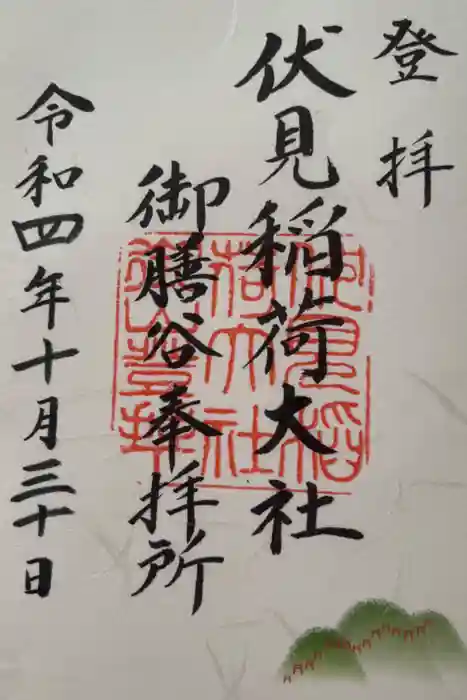 登拝
伏見稲荷大社
御膳谷奉拝所
令和四年十月三十日